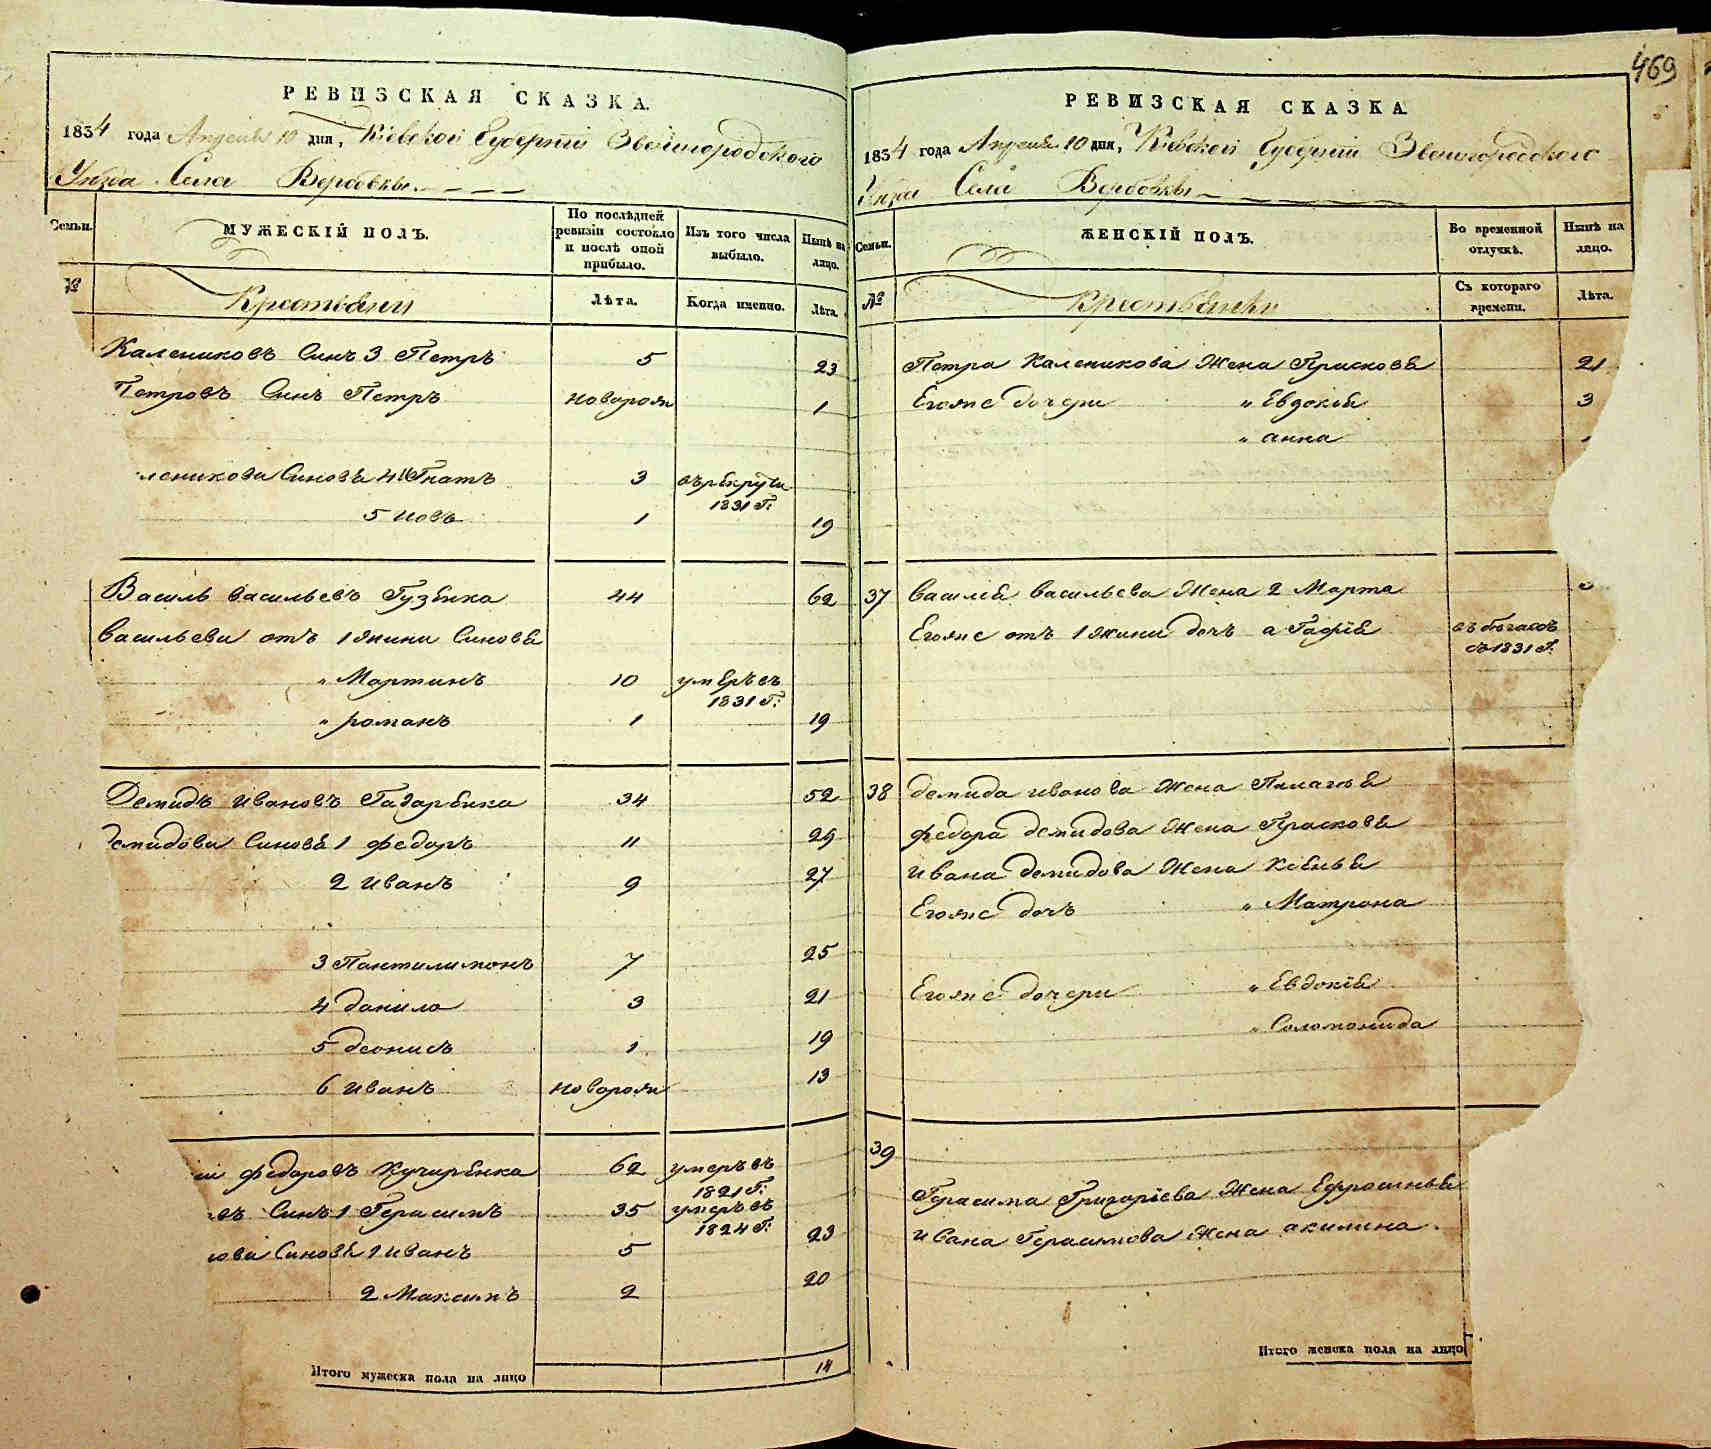 469
РЕВИЗСКАЯ СКАЗКА.
1834 года Апреля 10 дня, Кіевской Губерніи Звенигородского
Уезда Села Вербовки
Семьи.
МУЖЕСКІЙ ПОЛЪ.
По послѣдней ревизіи состояло и послѣ оной прибыло.
Изъ того числа выбыло.
Нынѣ на лицо.
№
Крестьяни
Лѣта.
Когда именно.
Лѣта.
Калениковъ Синъ 3 Петръ 5 23
Петровъ Синъ Петръ новорож 1
леникова Синовѣ 4 Гнатъ 3 въ рекруты 1831 Г:
5 иовъ 1 19
Василь васильевъ Гузенко 44 62
васильеви отъ 1 жини Синовѣ
" Мартинъ 10 умеръ въ 1831 Г:
" романъ 1 19
Демидъ ивановъ 34 52
демидови Синовѣ 1 федоръ 11 29
2 иванъ 9 27
3 Пантилимонъ 7 25
4 данило 3 21
5 деонисъ 1 19
6 иванъ новорож 13
федоровъ Кучеренко 62 умеръ въ 1821 Г:
въ Синъ 1 Герасимъ 35 умеръ въ 1824 Г:
ова Синовѣ 1 иванъ 5 23
2 Максимъ 2 20
Итого мужеска пола на лицо 14
РЕВИЗСКАЯ СКАЗКА
1834 года Апреля 10 дня, Кіевской Губерніи Звенигородского
Уезда Села Вербовки
Семьи.
ЖЕНСКІЙ ПОЛЪ.
Во временной отлучкѣ.
Нынѣ на лицо.
№
Крестьянки
Съ котораго времени.
Лѣта.
Петра Каленикова Жена Присковѣ 21
Егоже дочери " Евдокіѣ 3
" анна
37 василѣ васильева Жена 2 Марта
Егоже отъ 1 жини дочъ агафіѣ въ бегахъ съ 1831 Г.
38 демида иванова Жена Пилагѣѣ
федора демидова Жена Прасковѣ
ивана демидова Жена Ксеньѣ
Егоже дочъ " Матрона
Егоже дочери " Евдокіѣ
" Соломонида
39
Герасима Григоріева Жена Ефросиньѣ
ивана Герасимова Жена акилина
Итого женска пола на лицо